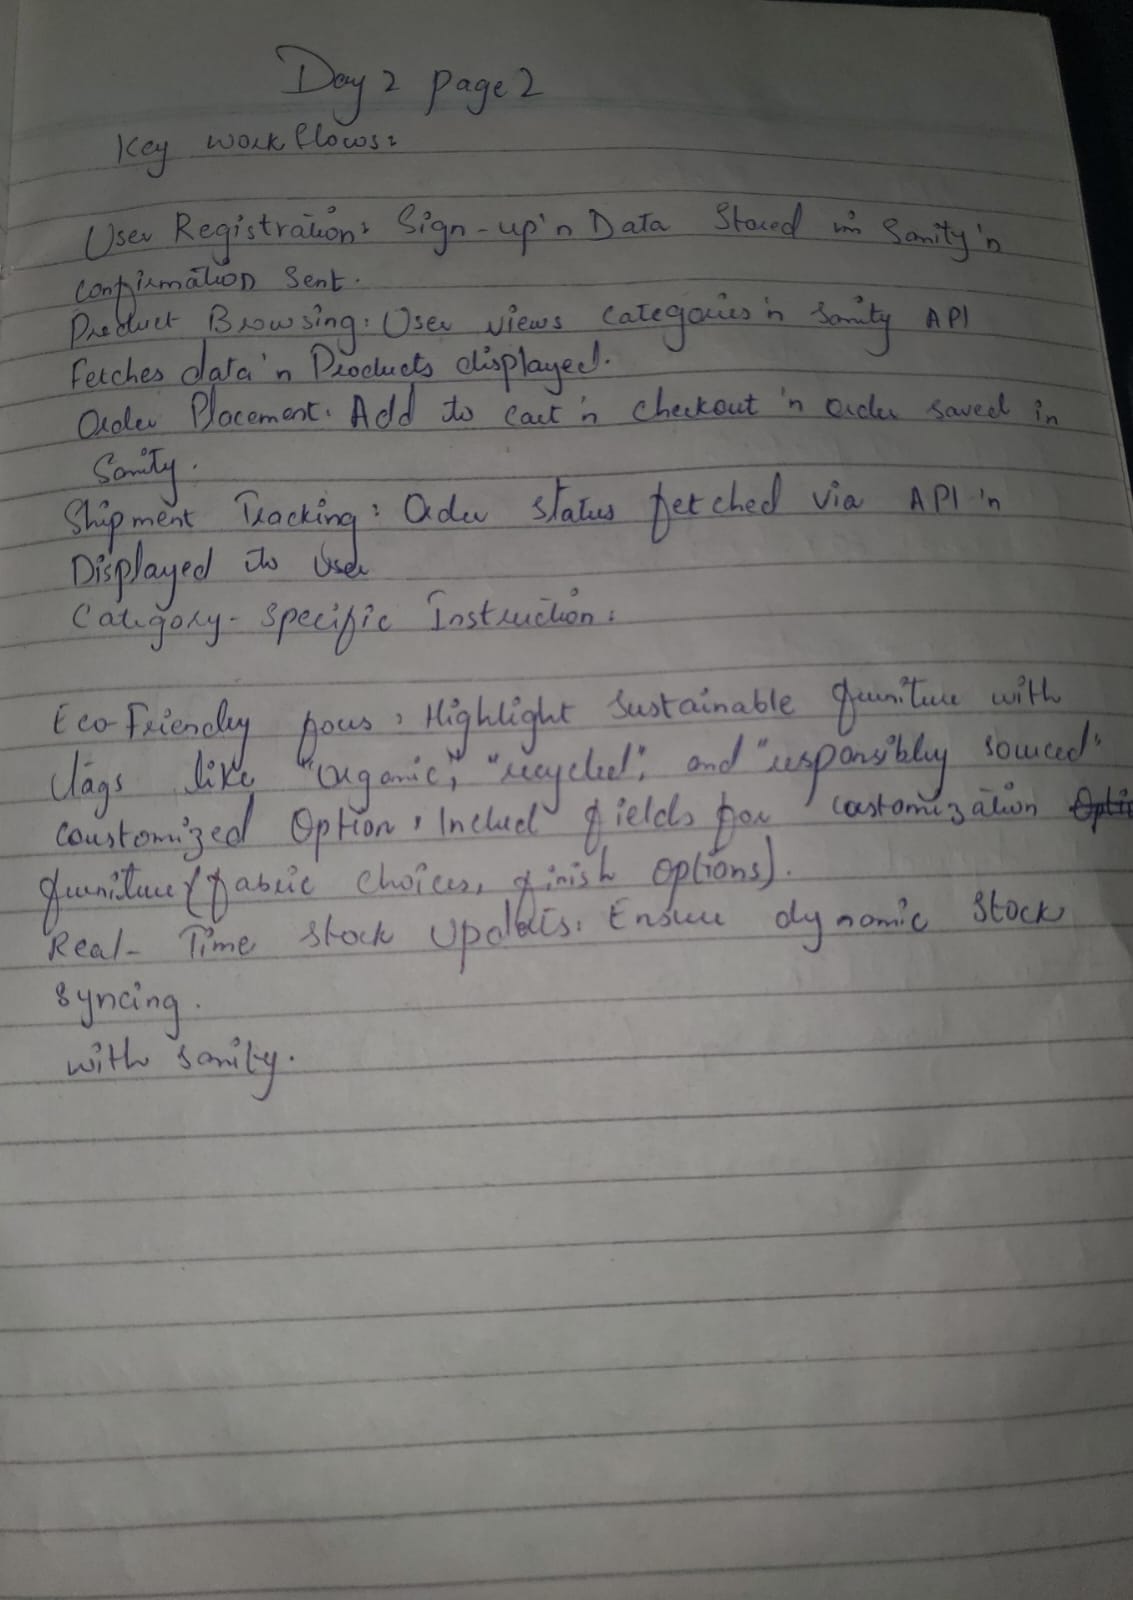 Day 2 page 2
Key work flows:
User Registration: Sign-up 'n Data Stored in Sanity 'n
confirmation Sent.
Product Browsing: User views categories 'n Sanity API
Fetches data 'n Products displayed.
Order Placement: Add to cart 'n checkout 'n order saved in
Sanity.
Shipment Tracking: Order status fetched via API 'n
Displayed to User
Category-Specific Instruction:
Eco-Friendly focus: Highlight Sustainable furniture with
tags like "Organic", "recycled", and "responsibly sourced"
Coustomized Option: Includ fields for costomization
furniture (fabric choices, finish options).
Real-Time stock Updates: Ensure dynamic Stock
Syncing.
with Sanity.